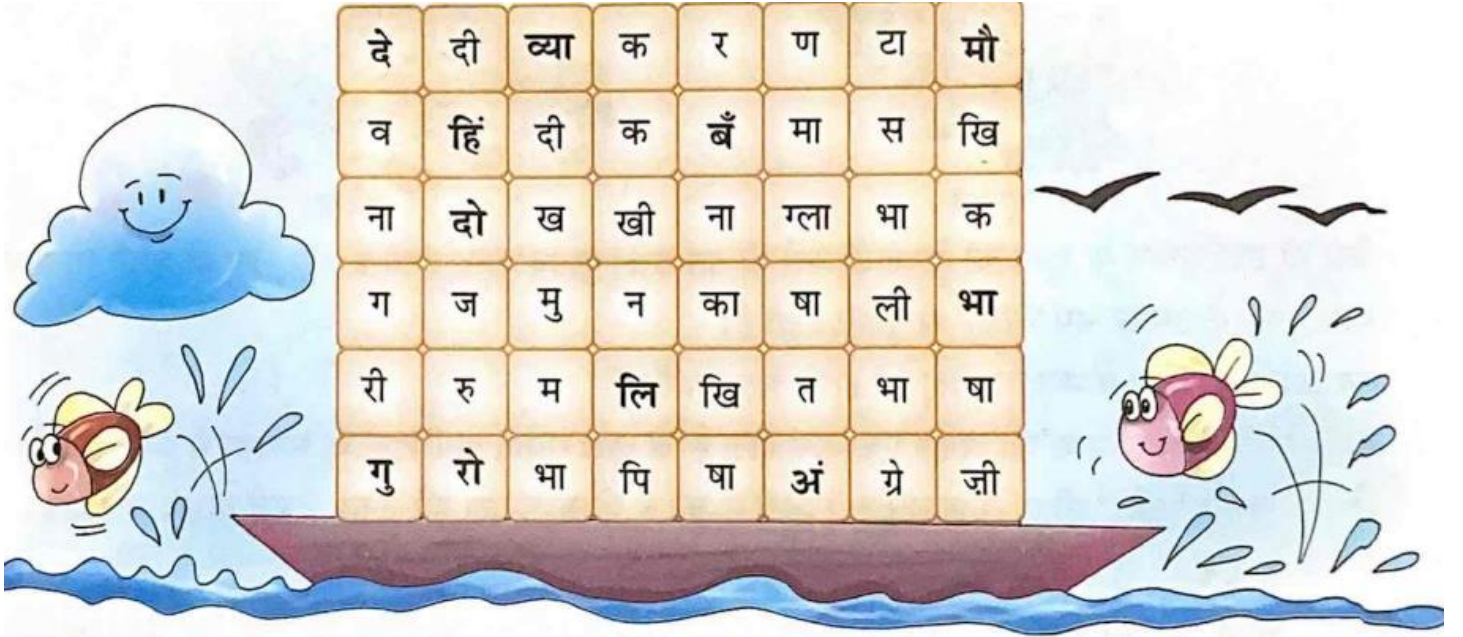 दे दी व्या क र ण टा मौ
व हिं दी क बँ मा स खि
ना दो ख खी ना ग्ला भा क
ग ज मु न का षा ली भा
री रु म लि खि त भा षा
गु रो भा पि षा अं ग्रे ज़ी